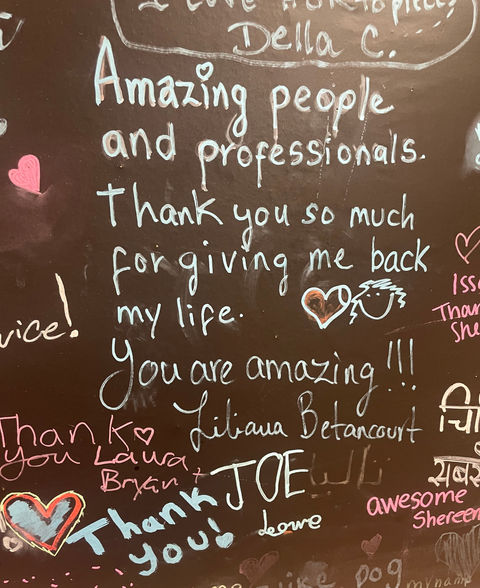 I LOVE
Della C.
Amazing people
and professionals.
Thank you so much
for giving me back
my life.
You are amazing!!!
Liliana Betancourt
vice!
Thank
you Laura
Bryan
JOE
Leone
Thank
you!
awesome
Shereen
Thank
She
चि
सब